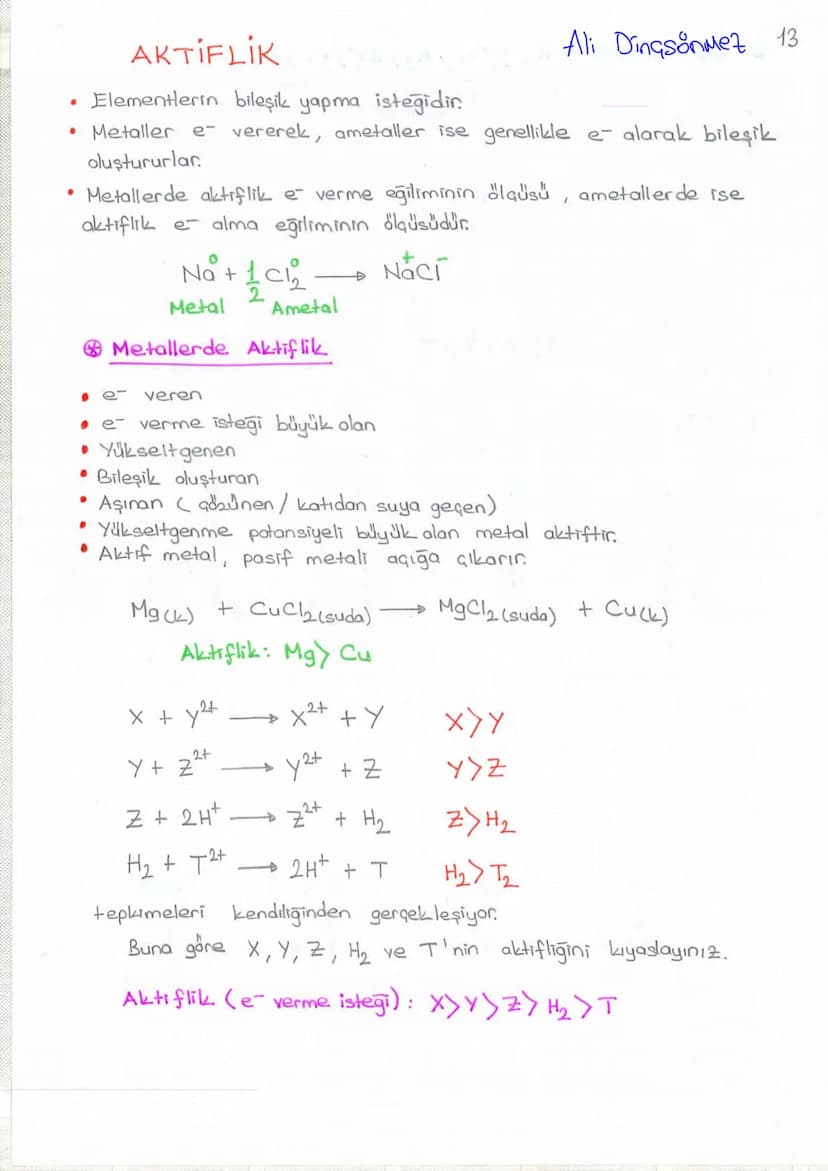 AKTİFLİK
Ali Dinçsönmez 13
• Elementlerin bileşik yapma isteğidir.
• Metaller e⁻ vererek, ametaller ise genellikle e⁻ alarak bileşik
oluştururlar.
• Metallerde aktiflik e⁻ verme eğiliminin ölçüsü, ametallerde ise
aktiflik e⁻ alma eğiliminin ölçüsüdür.
Na⁰ + 1/2 Cl₂⁰ ⟶ Na⁺Cl⁻
Metal Ametal
⊛ Metallerde Aktiflik
• e⁻ veren
• e⁻ verme isteği büyük olan
• Yükseltgenen
• Bileşik oluşturan
• Aşınan (çözünen / katıdan suya geçen)
• Yükseltgenme potansiyeli büyük olan metal aktiftir.
• Aktif metal, pasif metali açığa çıkarır.
Mg(k) + CuCl₂(suda) ⟶ MgCl₂(suda) + Cu(k)
Aktiflik: Mg > Cu
X + Y²⁺ ⟶ X²⁺ + Y X>Y
Y + Z²⁺ ⟶ Y²⁺ + Z Y>Z
Z + 2H⁺ ⟶ Z²⁺ + H₂ Z>H₂
H₂ + T²⁺ ⟶ 2H⁺ + T H₂>T₂
tepkimeleri kendiliğinden gerçekleşiyor.
Buna göre X, Y, Z, H₂ ve T'nin aktifliğini kıyaslayınız.
Aktiflik (e⁻ verme isteği): X>Y>Z>H₂>T